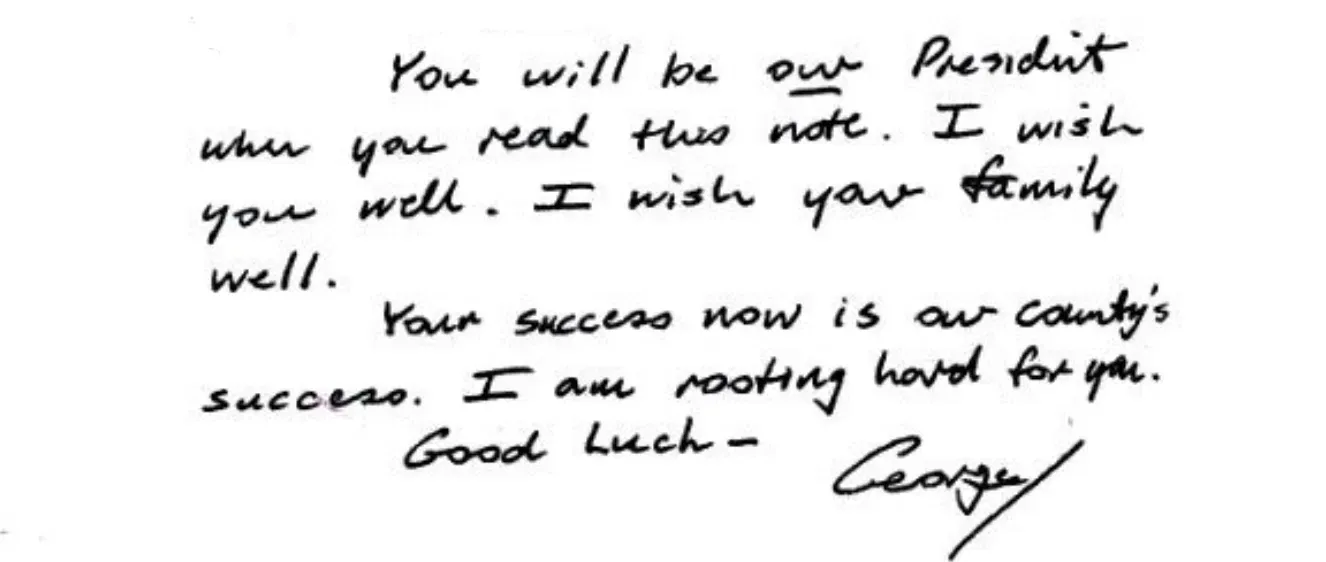 You will be our President
when you read this note. I wish
you well. I wish your family
well.
Your success now is our country's
success. I am rooting hard for you.
Good Luck -
George